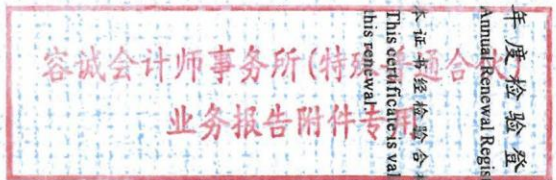 容诚会计师事务所(特殊普通合伙)
业务报告附件专用
年度检验登
Annual Renewal Regis
本证书经检验合
This certificate is val
this renewal.